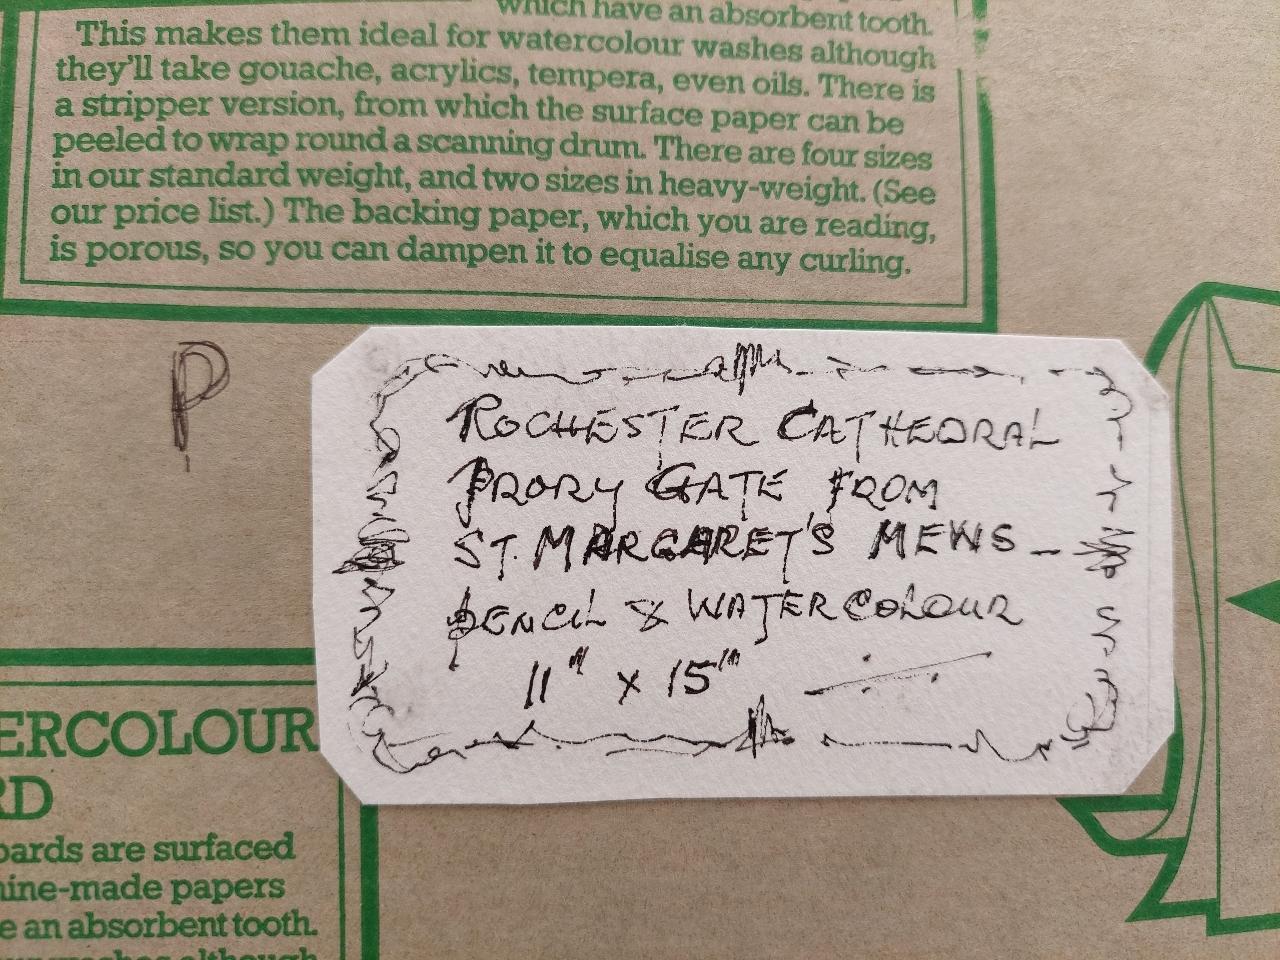 which have an absorbent tooth.
This makes them ideal for watercolour washes although
they'll take gouache, acrylics, tempera, even oils. There is
a stripper version, from which the surface paper can be
peeled to wrap round a scanning drum. There are four sizes
in our standard weight, and two sizes in heavy-weight. (See
our price list.) The backing paper, which you are reading,
is porous, so you can dampen it to equalise any curling.
P
ROCHESTER CATHEDRAL
PRORY GATE FROM
ST. MARGARET'S MEWS –
PENCIL & WATERCOLOUR
11" x 15"
ERCOLOUR
RD
oards are surfaced
ine-made papers
e an absorbent tooth.
although